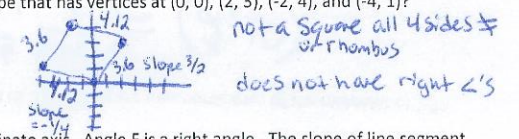 pe that has vertices at (0, 0), (2, 3), (-2, 4), and (-4, 1)?
4.12
3.6
3.6 slope 3/2
4.12
slope
= -1/4
not a square all 4 sides ≠
or rhombus
does not have right <'s
inate axis. Angle F is a right angle. The slope of line segment